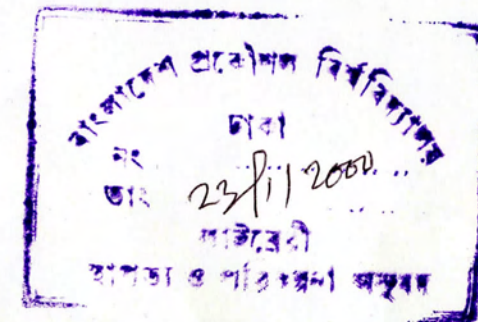 বাংলাদেশ প্রকৌশল বিশ্ববিদ্যালয়
ঢাকা
নং ..........
তাং 23/11/2000 ..
লাইব্রেরী
স্থাপত্য ও পরিকল্পনা অনুষদ